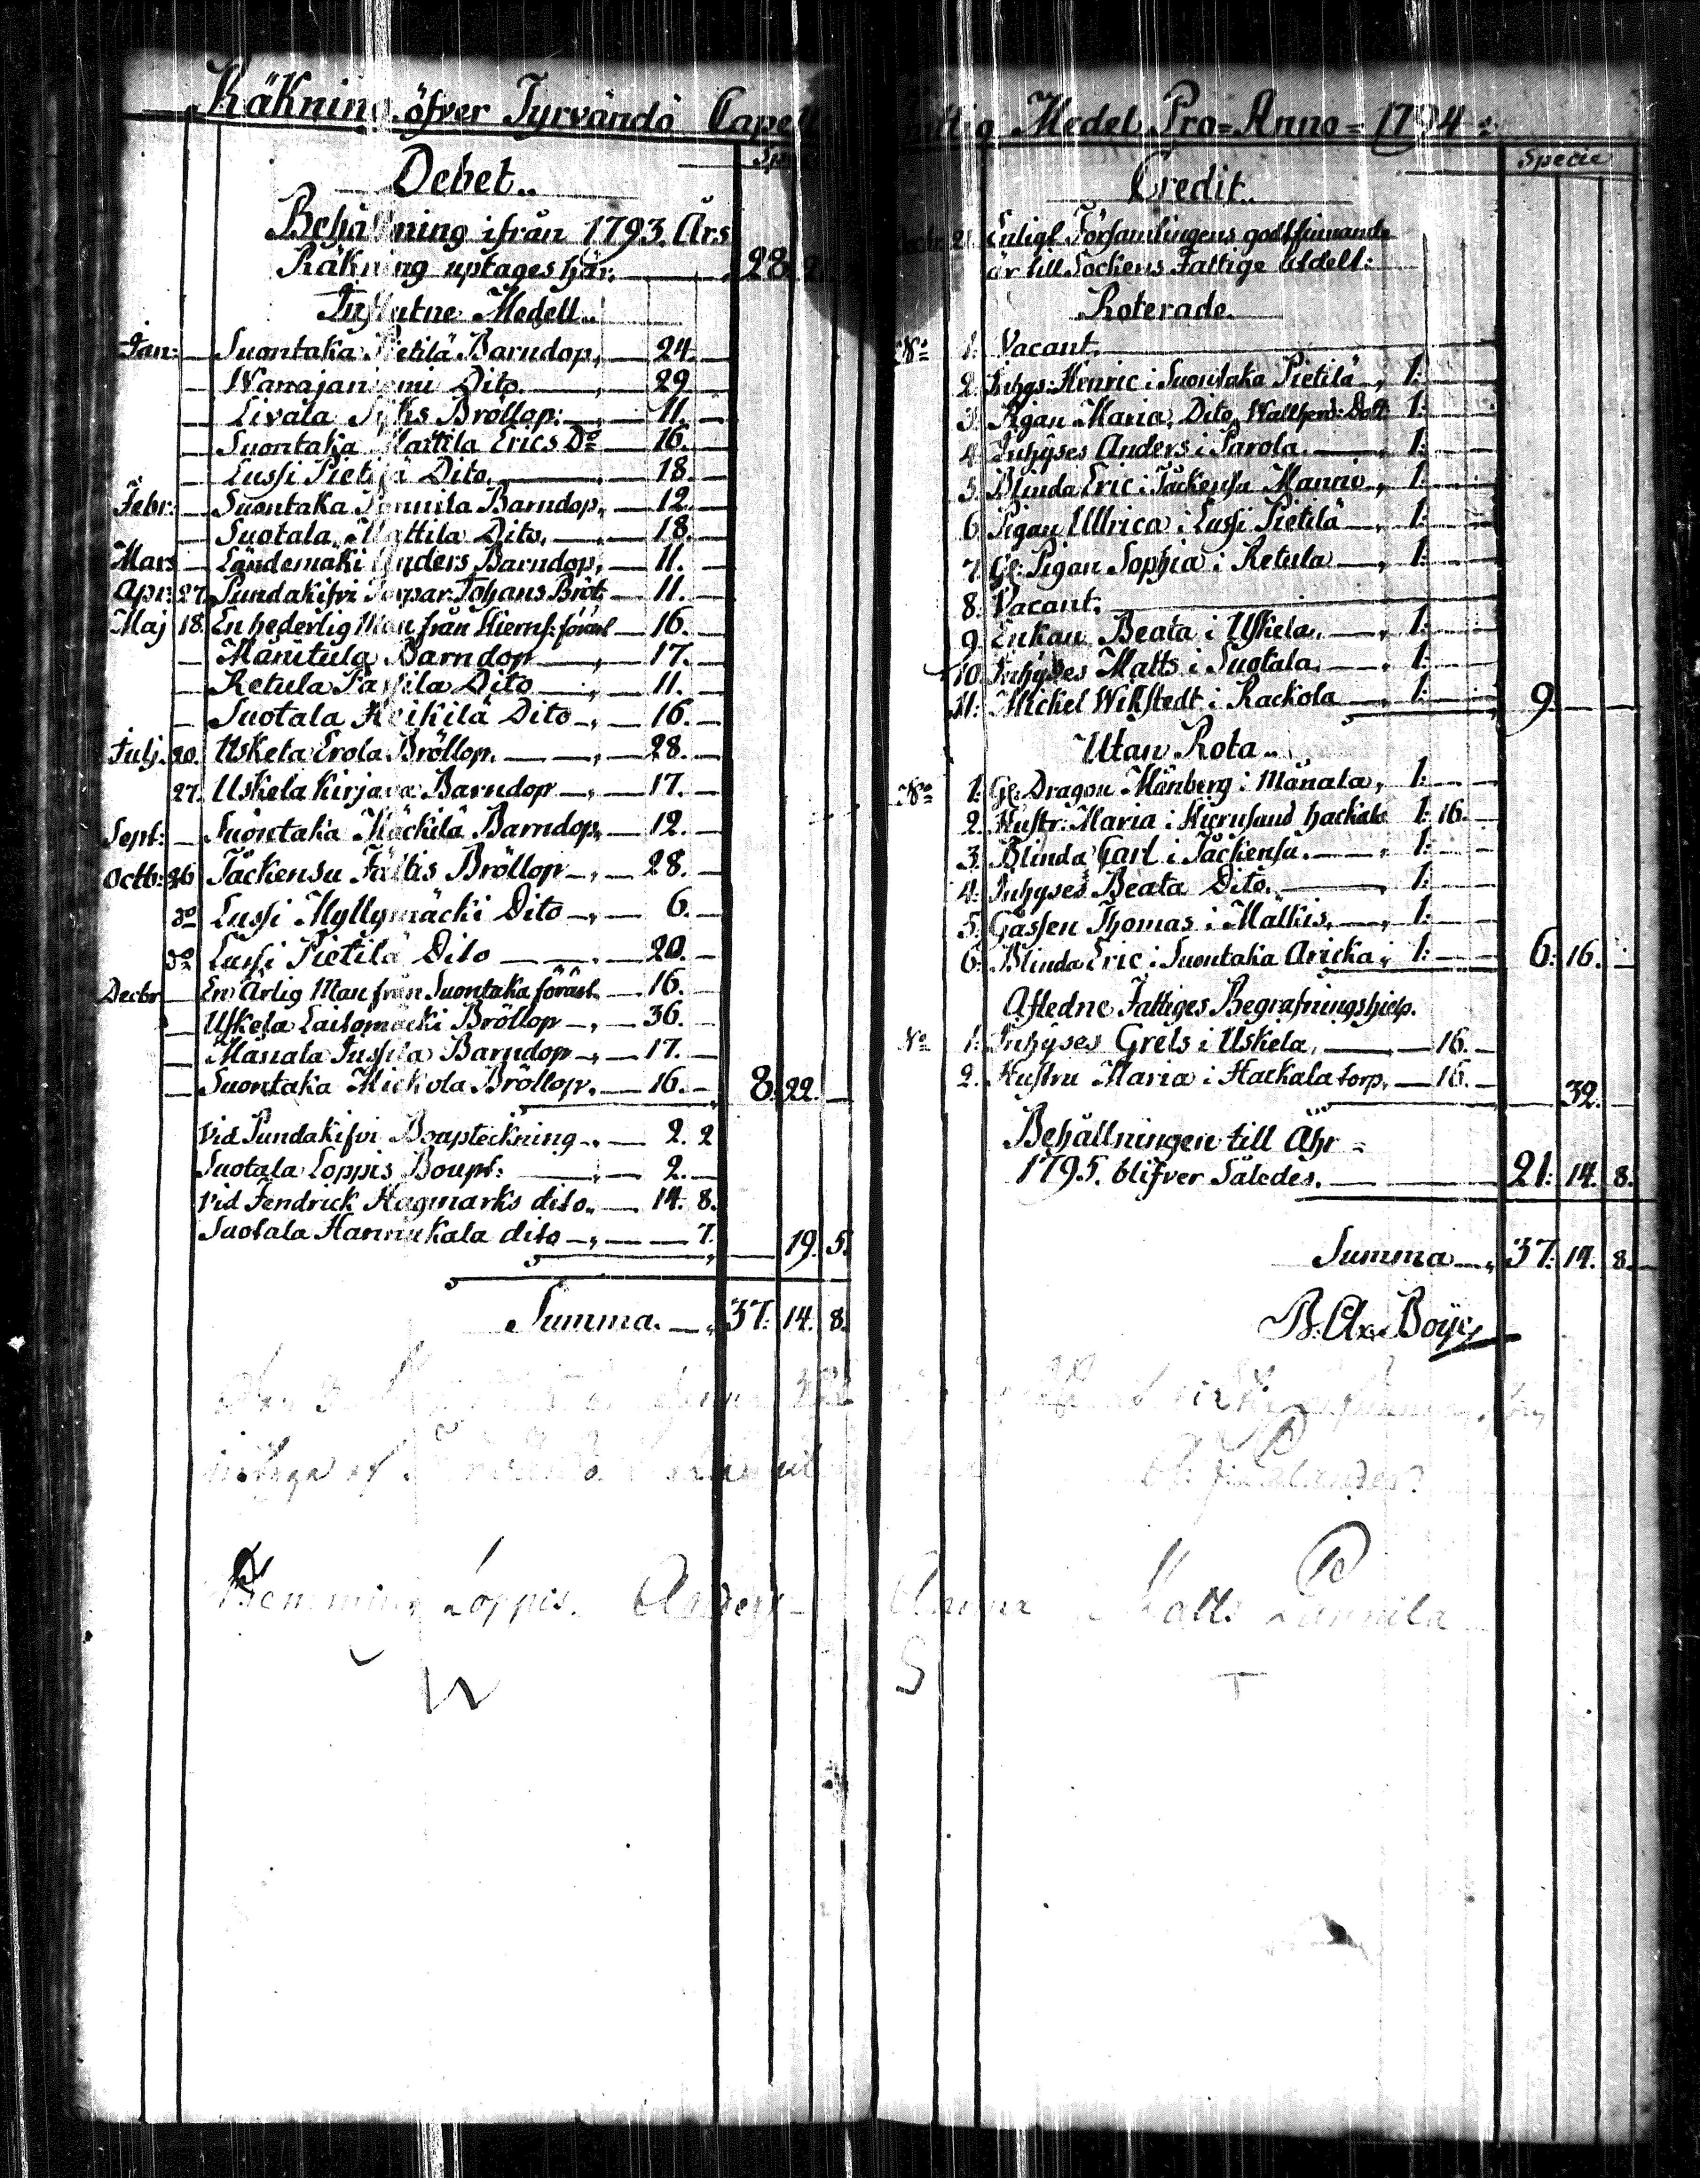 Räkning öfver Tyrvändö Capell Fattig Medel Pro=Anno=1794:
Debet..
Behållning ifrån 1793. Års
Räkning uptages här. 28.
Influtne Medell..
Jan: Suontaka Pietilä Barndop, 24.
Wanajaniemi Dito 29
Livala Bröllop: 11.
Suontaka Mattila Erics Do 16.
Lussi Pietilä Dito 18.
Febr: Suontaka Barndop, 12.
Suotala Mattila Dito, 18.
Mars Ländemäki Anders Barndop, 11.
Apr: 27. Pundakifvi Johans Bröl: 11.
Maj 18. En hederlig Man från Kiernf: föräl 16.
Mänitula Barndop 17.
Retula Passila Dito 11.
Suotala Heikilä Dito 16.
Julj. 20. Uskela Erola Bröllop. 28.
27. Uskela Kirjava Barndop 17.
Sept: Suontaka Mäckilä Barndop, 12.
Octb: 26 Täckensu Fältis Bröllop 28.
do Lussi Myllymäcki Dito 6.
do Lussi Pietilä Dito 20.
Decbr En Ärlig Man från Suontaka föräl 16.
Uskela Laitomäcki Bröllop 36.
Mänala Jussila Barndop 17.
Suontaka Mickola Bröllop. 16. 8. 22.
Vid Pundakifvi Boupteckning 2. 2
Suotala Loppis Boupt: 2.
Vid Fendrick Hagmarks dito 14. 8.
Suotala Hannukala dito 7. 19. 5.
Summa. 37. 14. 8.
Hemming Loppis. Anders
Specie
Credit..
21 Enligt Församlingens godtfinnande
är till Sockens Fattige utdelt:
Roterade
No 1. Vacant.
2. Inhys: Henric i Suontaka Pietilä 1:
3. Pigan Maria, Dito, Wallherd: Dott: 1:
4. Inhyses Anders i Parola 1:
5. Blinda Eric i Täckensu Manni 1:
6. Pigan Ullrica i Lussi Pietilä 1:
7. Gl: Pigan Sophia i Retula 1:
8. Vacant.
9. Enkan Beata i Uskela 1:
10. Inhyses Matts i Suotala 1:
11. Mickel Wikstedt i Rackola 1: 9.
Utan Rota..
No 1. Gl: Dragon Mänberg i Mänala, 1:
2. Hustr: Maria i Kiernsund hackala 1: 16.
3. Blinda Carl i Täckensu. 1:
4. Inhyses Beata Dito. 1:
5. Gåssen Thomas i Mälkis, 1:
6. Blinda Eric i Suontaka Aricka 1: 6. 16.
Afledne Fattiges Begrafningshjelp.
No 1. Inhyses Grels i Uskela, 16.
2. Hustru Maria i Hackala torp, 16. 32.
Behållningen till Åhr
1795. blifver Således. 21. 14. 8.
Summa 37. 14. 8.
Matts Pannila
S
T